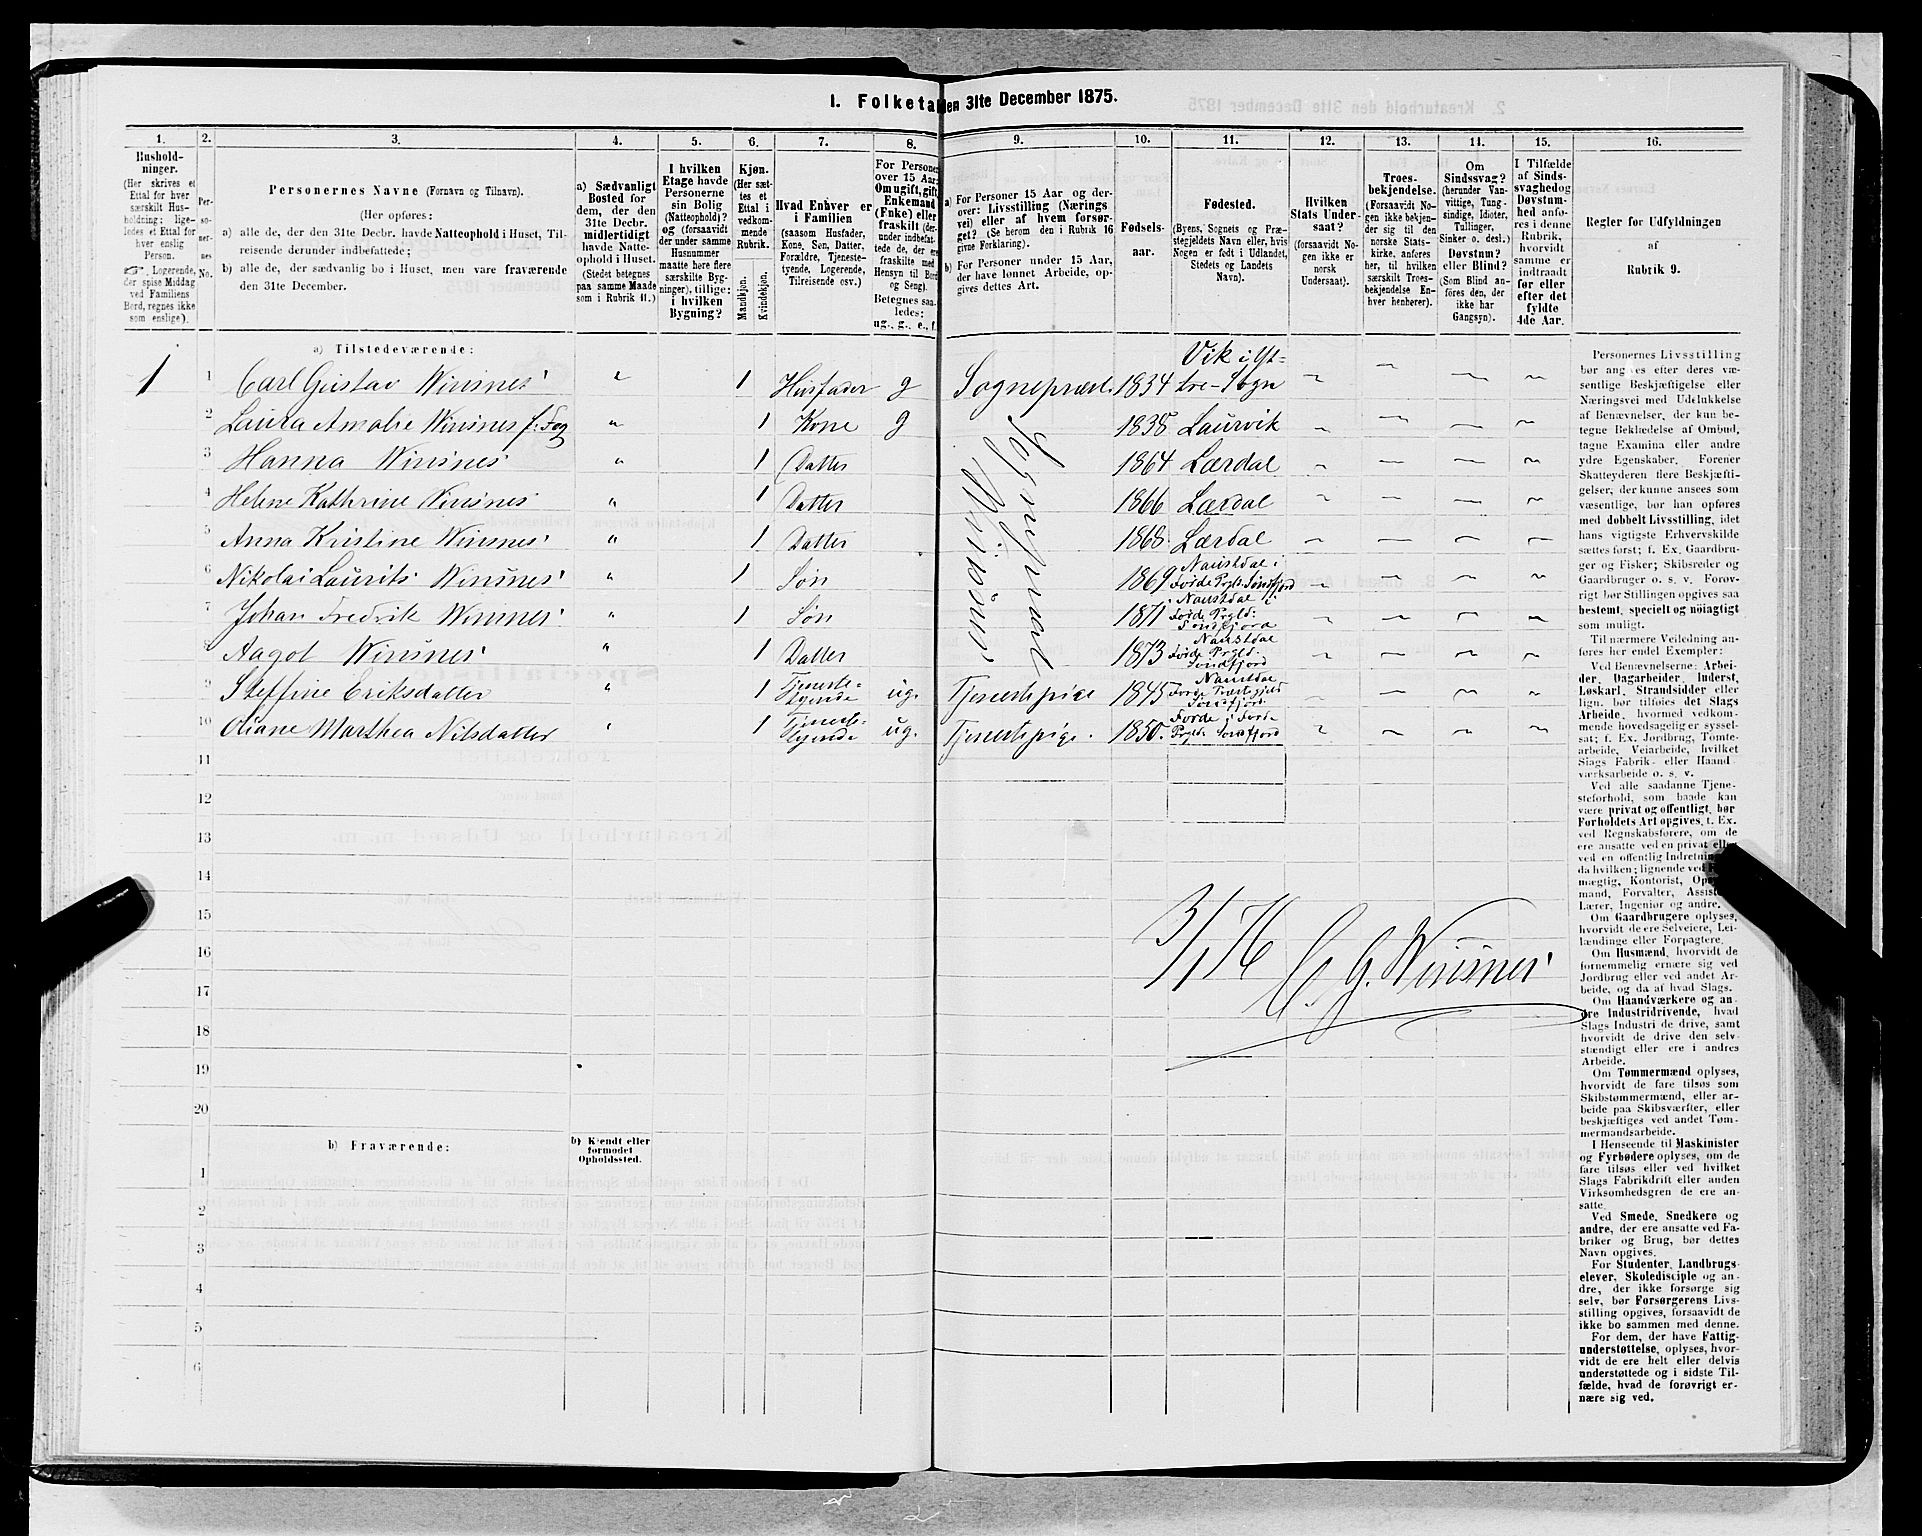 1. Folketa en 31te December 1875.
1. 2. 3. 4. 5. 6. 7. 8. 9. 10. 11. 12. 13. 14. 15. 16.
Hushold-
ninger.
(Her skrives et
Ettal for hver
særskilt Hus-
holdning; lige-
ledes et Ettal for
hver enslig
Person.
Logerende,
der spise Middag
ved Familiens
Bord, regnes ikke
som enslige).
Per-
so-
ner-
nes
No.
Personernes Navne (Fornavn og Tilnavn).
(Her opføres:
a) alle de, der den 31te Decbr. havde Natteophold i Huset, Til-
reisende derunder indbefattede;
b) alle de, der sædvanlig bo i Huset, men vare fraværende
den 31te December.
a) Sædvanligt
Bosted for
dem, der den
31te Decbr.
midlertidigt
havde Natte-
ophold i Huset.
(Stedet betegnes
paa samme Maade
som i Rubrik 11.)
I hvilken
Etage havde
Personerne
sin Bolig
(Natteophold)?
og (forsaavidt
der under samme
Husnummer
maatte høre flere
særskilte Byg-
ninger), tillige:
i hvilken
Bygning?
Kjøn.
(Her sæt-
tes et
Ettal i
vedkom-
mende
Rubrik.
Mandkjøn.
Kvindekjøn.
Hvad Enhver er
i Familien
(saasom Husfader,
Kone, Søn, Datter,
Forældre, Tjeneste-
tyende, Logerende,
Tilreisende osv.)
For Personer
over 15 Aar:
Om ugift, gift,
Enkemand
(Enke) eller
fraskilt (der-
under indbefat-
tede de, der ere
fraskilte med
Hensyn til Bord
og Seng).
Betegnes saa-
ledes:
ug., g., e., f.
a) For Personer 15 Aar og der-
over: Livsstilling (Nærings
vei) eller af hvem forsør-
get? (Se herom den i Rubrik 16
givne Forklaring).
b) For Personer under 15 Aar,
der have lønnet Arbeide, op-
gives dettes Art.
Fødsels-
aar.
Fødested.
(Byens, Sognets og Præ-
stegjeldets Navn eller, hvis
Nogen er født i Udlandet,
Stedets og Landets
Navn).
Hvilken
Stats Under-
saat?
(forsaavidt No-
gen ikke er
norsk
Undersaat).
Troes-
bekjendelse.
(Forsaavidt No-
gen ikke bekjen-
der sig til den
norske Stats-
kirke, anføres
her, til hvilken
særskilt Troes-
bekjendelse En-
hver henhører).
Om
Sindssvag?
(herunder Van-
vittige, Tung-
sindige, Idioter,
Tullinger,
Sinker o. desl.)
Døvstum?
eller Blind?
(Som Blind an-
føres den, der
ikke har
Gangsyn).
I Tilfælde
af Sinds-
svaghed og
Døvstum-
hed anfø-
res i denne
Rubrik,
hvorvidt
samme er
indtraadt
før eller
efter det
fyldte
4de Aar.
Regler for Udfyldningen
af
Rubrik 9.
a) Tilstedeværende:
1 1 Carl Gustav Winsnes " 1 Husfader g Sognepræst 1834 Vik i Yt-
tre-Sogn
2 Laura Amalie Winsnes f. Fog " 1 Kone g 1838 Laurvik
3 Hanna Winsnes " 1 Datter 1864 Lærdal
4 Helene Kathrine Winsnes " 1 Datter 1866 Lærdal
5 Anna Kristine Winsnes " 1 Datter 1868. Lærdal
6 Nikolai Laurits Winsnes " 1 Søn 1869 Naustdal i
Førde Prgld. Søndfjord
7 Johan Fredrik Winsnes " 1 Søn 1871 Naustdal i
Førde Prgld.
Søndfjord
8 Aagot Winsnes " 1 Datter 1873 Naustdal
Førde Prgld.
Søndfjord
Sognepræst
Winsnes
9 Steffine Eriksdatter " 1 Tjeneste-
tyende ug. Tjenestepige 1845 Naustdal
Førde Præstegjeld
Søndfjord
10 Oliane Marthea Nilsdatter " 1 Tjeneste-
tyende ug. Tjenestepige. 1850. Førde i Førde
Prgld. Søndfjord
11
12
13
14
15
16
17
18
19
20
3/1 76 C. G. Winsnes
b) Fraværende:
b) Kjendt eller
formodet
Opholdssted.
1
2
3
4
5
6
Personernes Livsstilling
bør angives efter deres væ-
sentlige Beskjæftigelse eller
Næringsvei med Udelukkelse
af Benævnelser, der kun be-
tegne Beklædelse af Ombud,
tagne Examina eller andre
ydre Egenskaber. Forener
Skatteyderen flere Beskjæfti-
gelser, der kunne ansees som
væsentlige, bør han opføres
med dobbelt Livsstilling, idet
hans vigtigste Erhvervskilde
sættes først; f. Ex. Gaardbru-
ger og Fisker; Skibsreder og
Gaardbruger o. s. v. Forøv-
rigt bør Stillingen opgives saa
bestemt, specielt og nøiagtigt
som muligt.
Til nærmere Veiledning an-
føres her endel Exempler:
Ved Benævnelserne: Arbei-
der, Dagarbeider, Inderst,
Løskarl, Strandsidder eller
lign. bør tilføies det Slags
Arbeide, hvormed vedkom-
mende hovedsagelig er syssel-
sat; f. Ex. Jordbrug, Tømte-
arbeide, Veiarbeide, hvilket
Slags Fabrik- eller Haand-
værksarbeide o. s. v.
Ved alle saadanne Tjene-
steforhold, som baade kan
være privat og offentligt, bør
Forholdets Art opgives, t. Ex.
ved Regnskabsførere, om de
ere ansatte ved en privat eller
ved en offentlig Indretning
da hvilken; lignende ved
mægtig, Kontorist,
mand, Forvalter,
Lærer, Ingeniør og andre.
Om Gaardbrugere oplyses,
hvorvidt de ere Selveiere, Lei-
lændinge eller Forpagtere.
Om Husmænd, hvorvidt de
fornemmelig ernære sig ved
Jordbrug eller ved andet Ar-
beide, og da af hvad Slags.
Om Haandværkere og an-
dre Industridrivende, hvad
Slags Industri de drive, samt
hvorvidt de drive den selv-
stændigt eller ere i andres
Arbeide.
Om Tømmermænd oplyses,
hvorvidt de fare tilsøs som
Skibstømmermænd, eller ar-
beide paa Skibsværfter, eller
beskjæftiges ved andet Tøm-
mermandsarbeide.
I Henseende til Maskinister
og Fyrbødere oplyses, om de
fare tilsøs eller ved hvilket
Slags Fabrikdrift eller anden
Virksomhedsgren de ere an-
satte.
Ved Smede, Snedkere og
andre, der ere ansatte ved Fa-
briker og Brug, bør dettes
Navn opgives.
For Studenter, Landbrugs-
elever, Skoledisciple og an-
dre, der ikke forsørge sig
selv, bør Forsørgerens Livs-
stilling opgives, forsaavidt de
ikke bo sammen med denne.
For dem, der have Fattig-
understøttelse, oplyses, hvor-
vidt de ere helt eller delvis
understøttede og i sidste Til-
fælde, hvad de forøvrigt er-
nære sig ved.